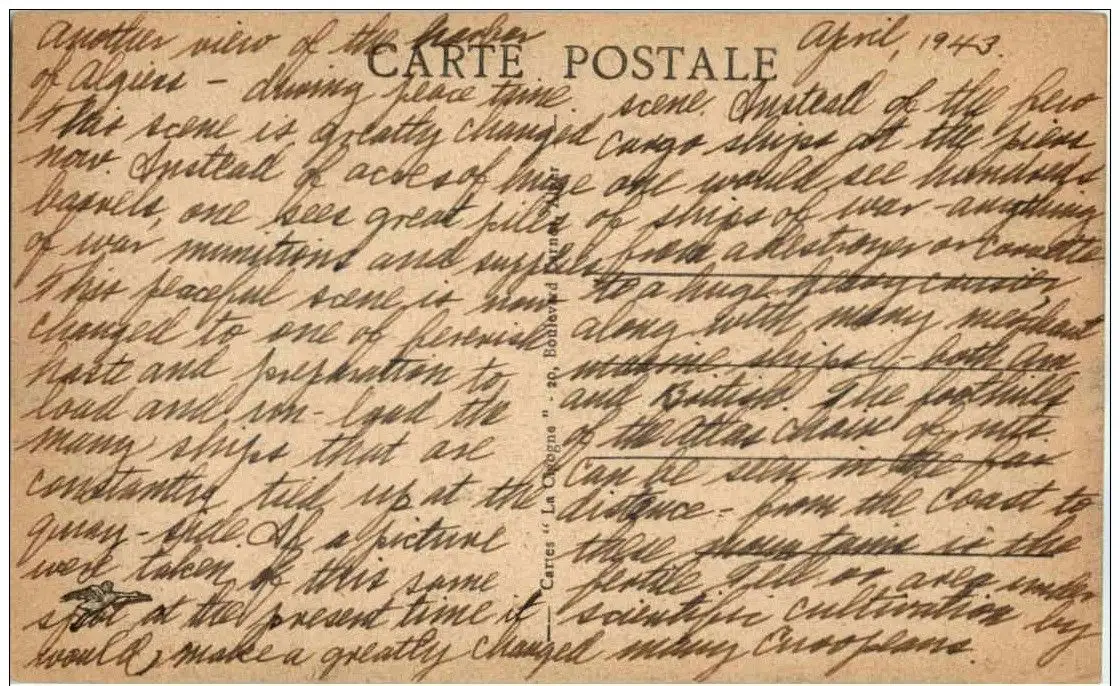 CARTE POSTALE
April, 1943.
Another view of the harbor
of Algiers – during peace time.
This scene is greatly changed
now. Instead of acres of huge
barrels, one sees great piles
of war munitions and supplies
this peaceful scene is now
changed to one of feverish
haste and preparation to
load and un-load the
many ships that are
constantly tied up at the
quay-side. If a picture
were taken of this same
spot at the present time it
would make a greatly changed
scene. Instead of the few
cargo ships at the piers
one would see hundreds
of ships of war – anything
from a destroyer or corvette
to a huge heavy cruiser,
along with many merchant
marine ships – both Am
and British. The foothills
of the Atlas chain of mts.
can be seen in the far
distance – from the coast to
these mountains is the
fertile Tell or area under
scientific cultivation by
many Europeans.
Cartes "La Cigogne" - 20, Boulevard